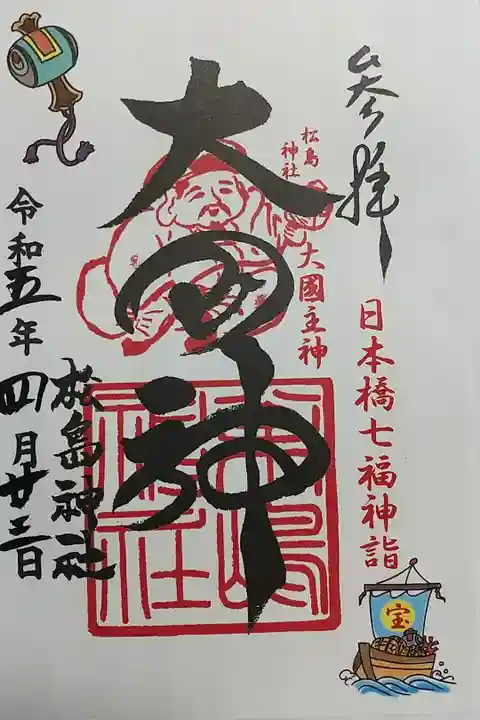 参拝
日本橋七福神詣
松島
神社
大國主神
大国神
松島神社
令和五年
四月廿三日
松島神社
宝